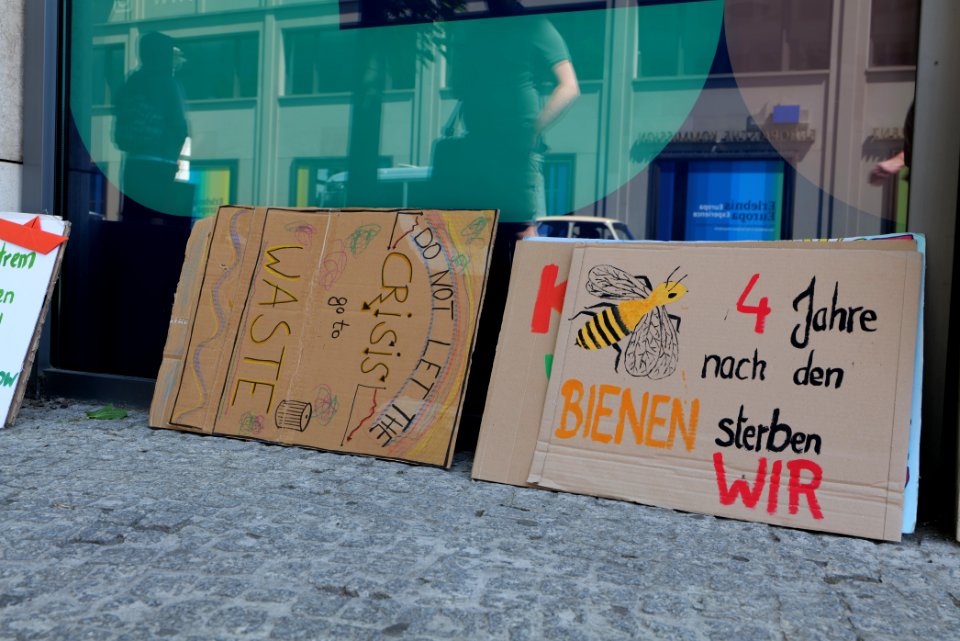 trem
en
ow
DO NOT LET THE
CRISIS
go to
WASTE
K
4 Jahre
nach den
BIENEN sterben
WIR
Erlebnis Europa
Europa Experience